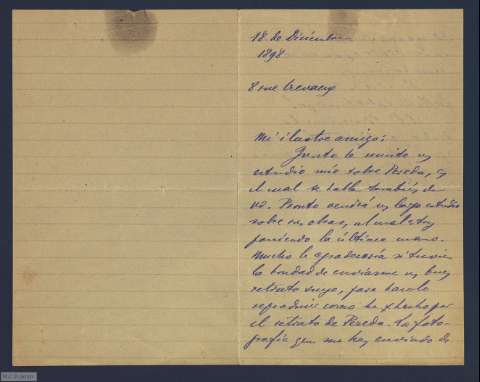 18 de Diciembre
1898
8 rue
Mi ilustre amigo:
Junto le remito un
estudio mío sobre Pereda, en
el cual se habla también de
Vd. Pronto vendrá un largo estudio
sobre sus obras, al cual estoy
poniendo la última mano.
Mucho le agradecería si tuviera
la bondad de enviarme un buen
retrato suyo, para
reproducir como he hecho por
el retrato de Pereda. La foto-
grafía que me han enviado de